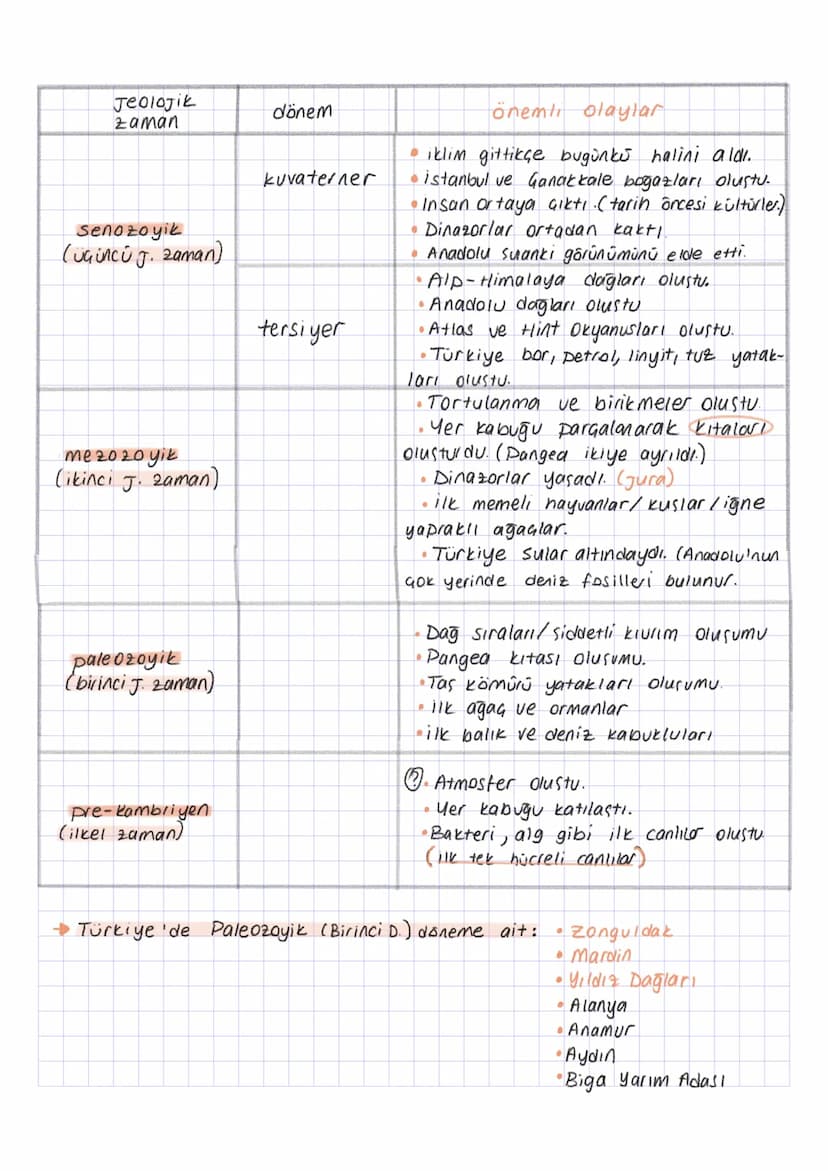 Jeolojik zaman
dönem
önemli olaylar
senozoyik
(üçüncü J. zaman)
kuvaterner
• iklim gittikçe bugünkü halini aldı.
• istanbul ve Çanakkale boğazları oluştu.
• insan ortaya çıktı. (tarih öncesi kültürler.)
• Dinazorlar ortadan kaktı.
• Anadolu şuanki görünümünü elde etti.
tersiyer
• Alp-Himalaya dağları oluştu.
• Anadolu dağları oluştu
• Atlas ve Hint Okyanusları oluştu.
• Türkiye bor, petrol, linyit, tuz yatak-
ları oluştu.
mezozoyik
(ikinci J. zaman)
• Tortulanma ve birikmeler oluştu.
• Yer kabuğu parçalanarak kıtaları
oluşturdu. (Pangea ikiye ayrıldı.)
• Dinazorlar yaşadı. (Jura)
• ilk memeli hayvanlar/kuşlar/iğne
yapraklı ağaçlar.
• Türkiye sular altındaydı. (Anadolu'nun
çok yerinde deniz fosilleri bulunur.
paleozoyik
(birinci J. zaman)
• Dağ sıraları/şiddetli kıvrım oluşumu
• Pangea kıtası oluşumu.
• Taş kömürü yatakları oluşumu.
• ilk ağaç ve ormanlar
• ilk balık ve deniz kabukluları
pre-kambriyen
(ilkel zaman)
?. Atmosfer oluştu.
• Yer kabuğu katılaştı.
• Bakteri, alg gibi ilk canlılar oluştu.
(ilk tek hücreli canlılar)
→ Türkiye'de Paleozoyik (Birinci D.) döneme ait:
• Zonguldak
• Mardin
• Yıldız Dağları
• Alanya
• Anamur
• Aydın
• Biga Yarım Adası